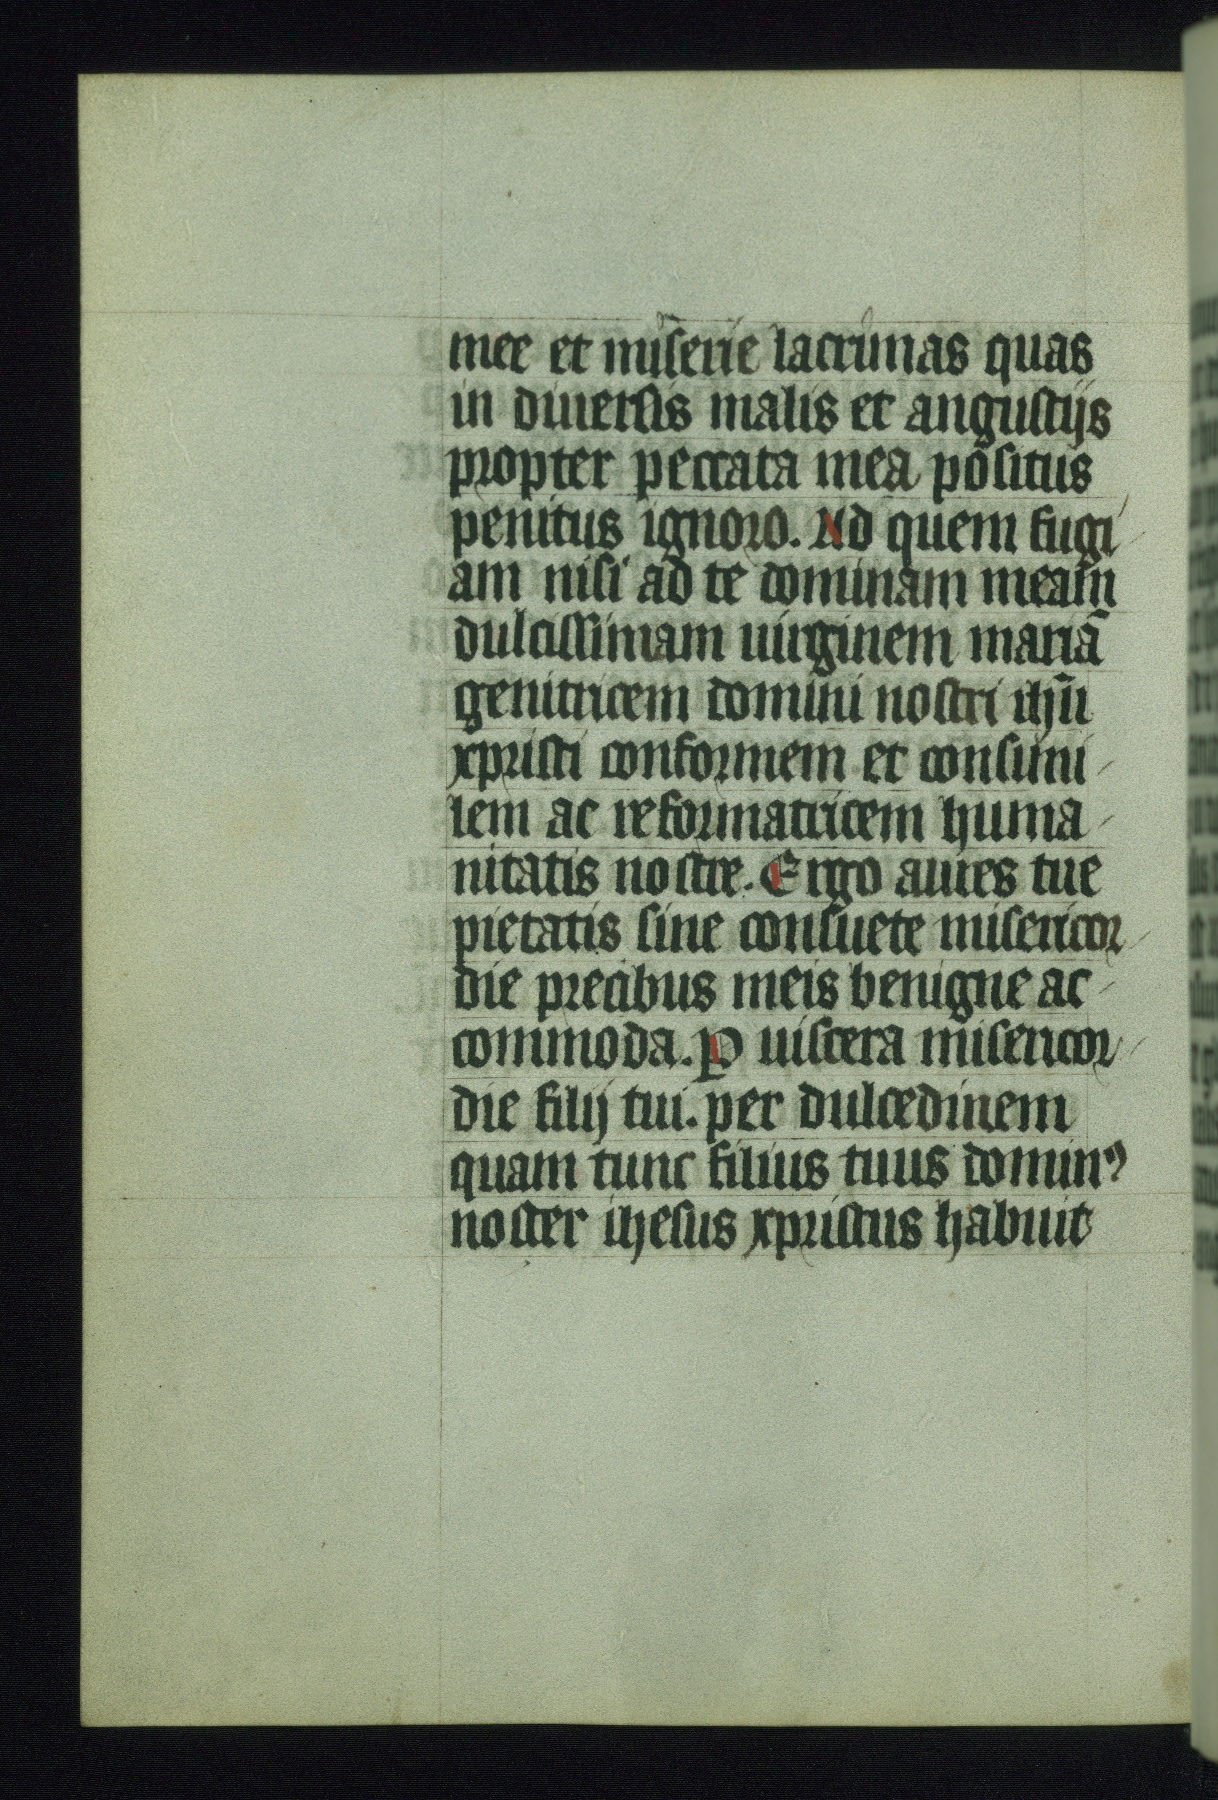 mee et miserie lacrimas quas
in diuersis malis et angustijs
propter peccata mea positus
penitus ignoro. Ad quem fugi
am nisi ad te dominam meam
dulcissimam uirginem mariā
genitricem domini nostri ihū
xpristi conformem et consimi
lem ac reformatricem huma
nitatis nostre. Ergo aures tue
pietatis siue consuete misericor
die precibus meis benigne ac
commoda. Ꝑ uiscera misericor
die filij tui. per dulcedinem
quam tunc filius tuus dominꝰ
noster ihesus xpristus habuit